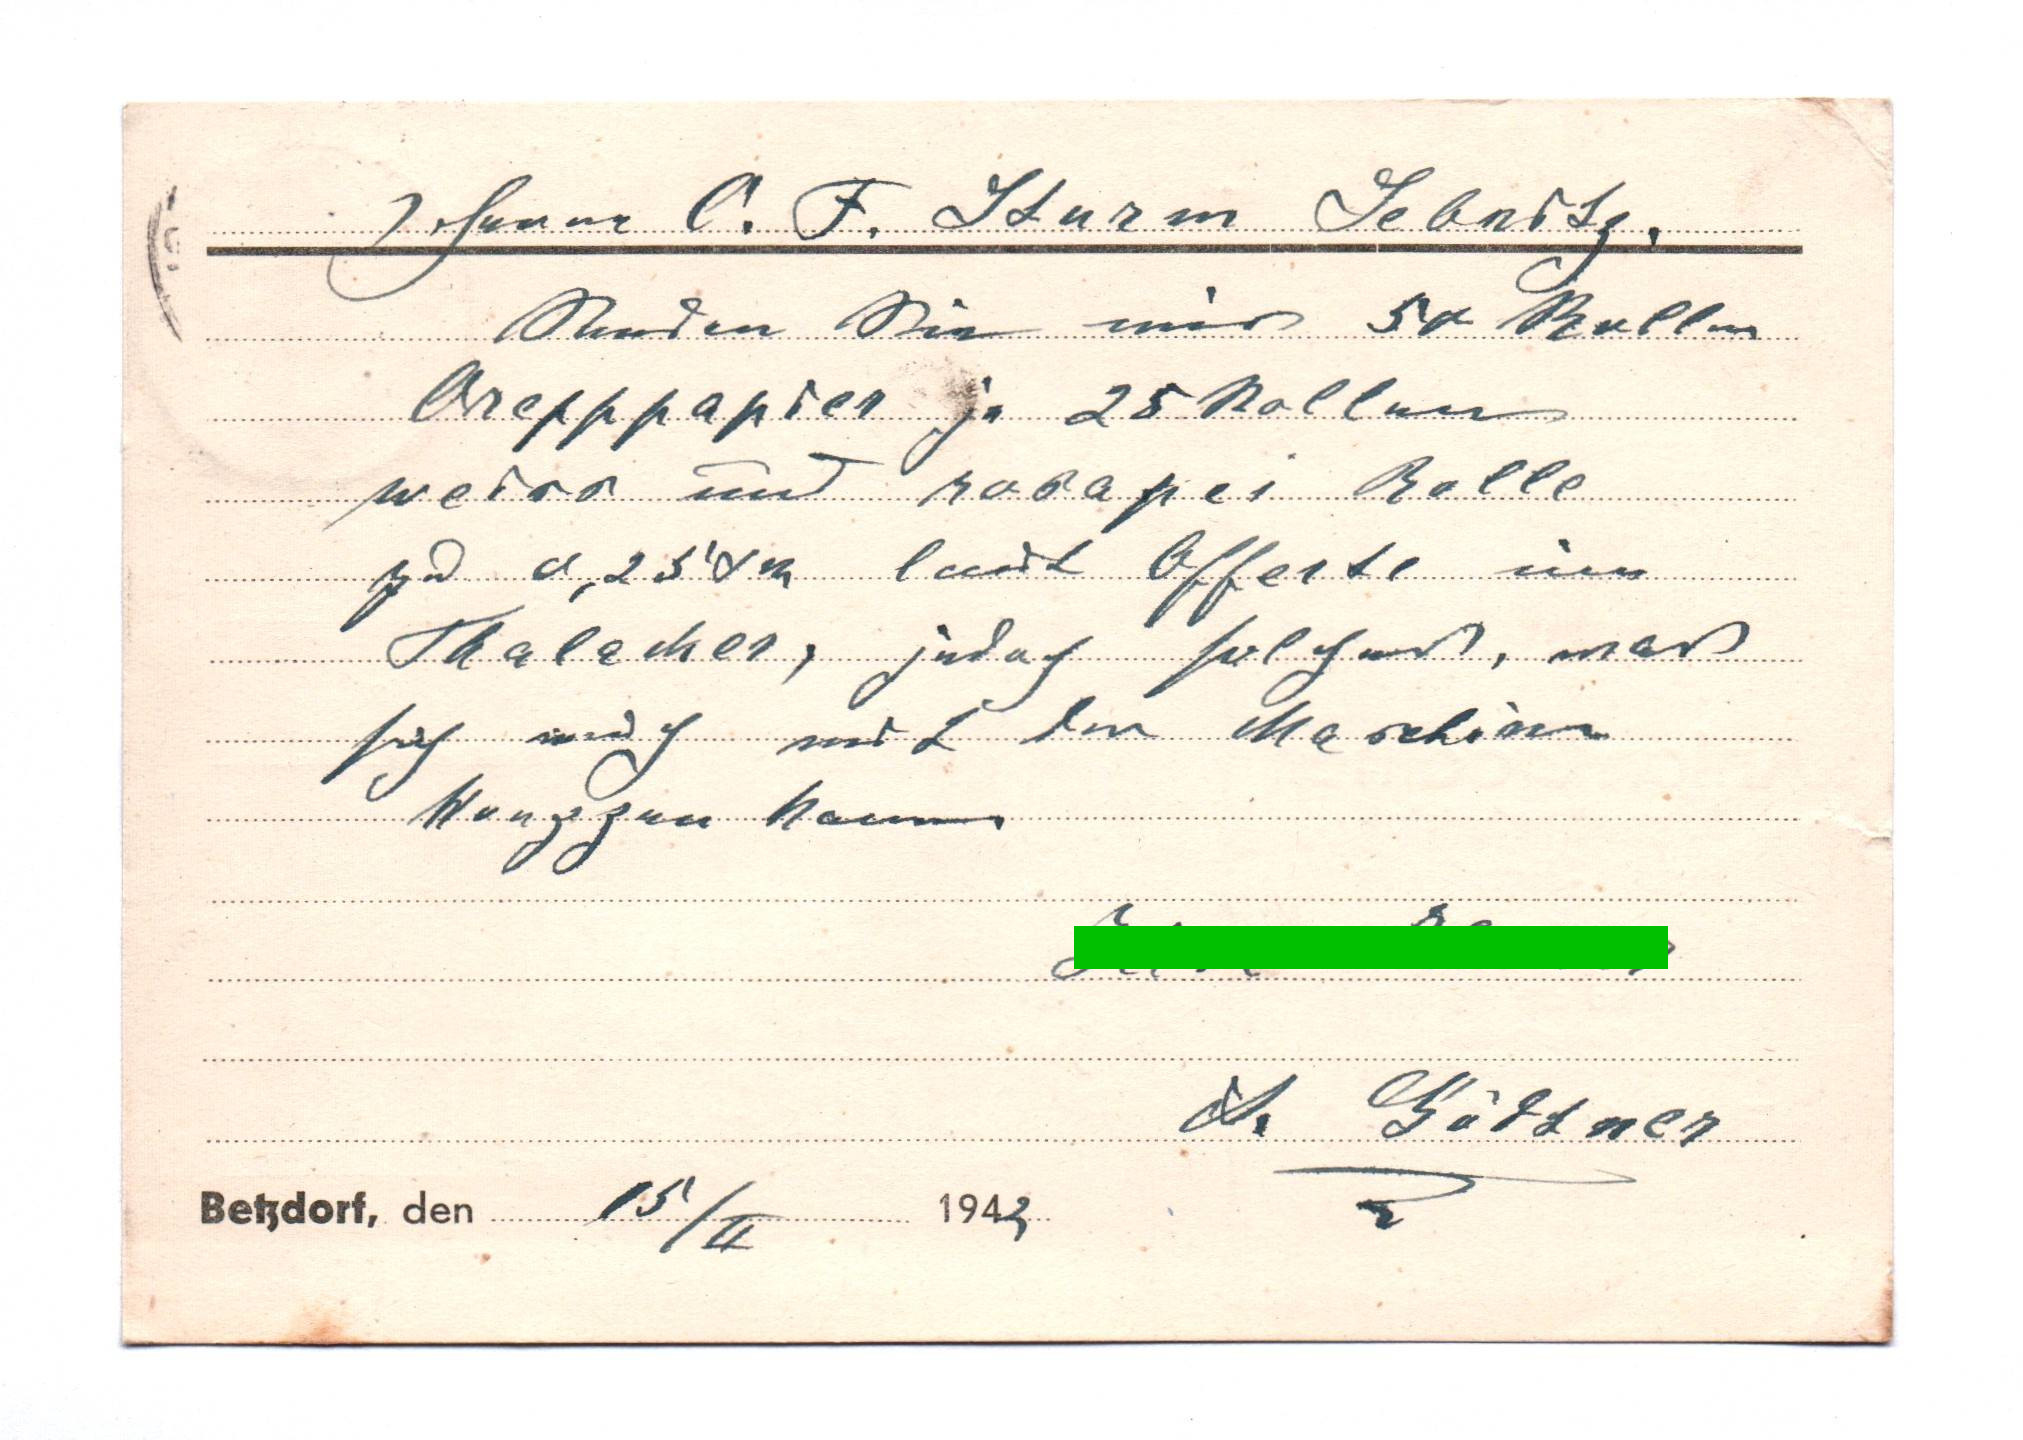 Herrn C. F. Sturm Sebnitz.
Senden Sie mir 50 Rollen
Crepppapier je 25 Rollen
weiss und rosa pei Rolle
zu 0,25 laut Offerte im
Thalacker, jedoch solches, was
sich auch mit der Maschine
kann
A. Göttner
Betzdorf, den 15/II 1942